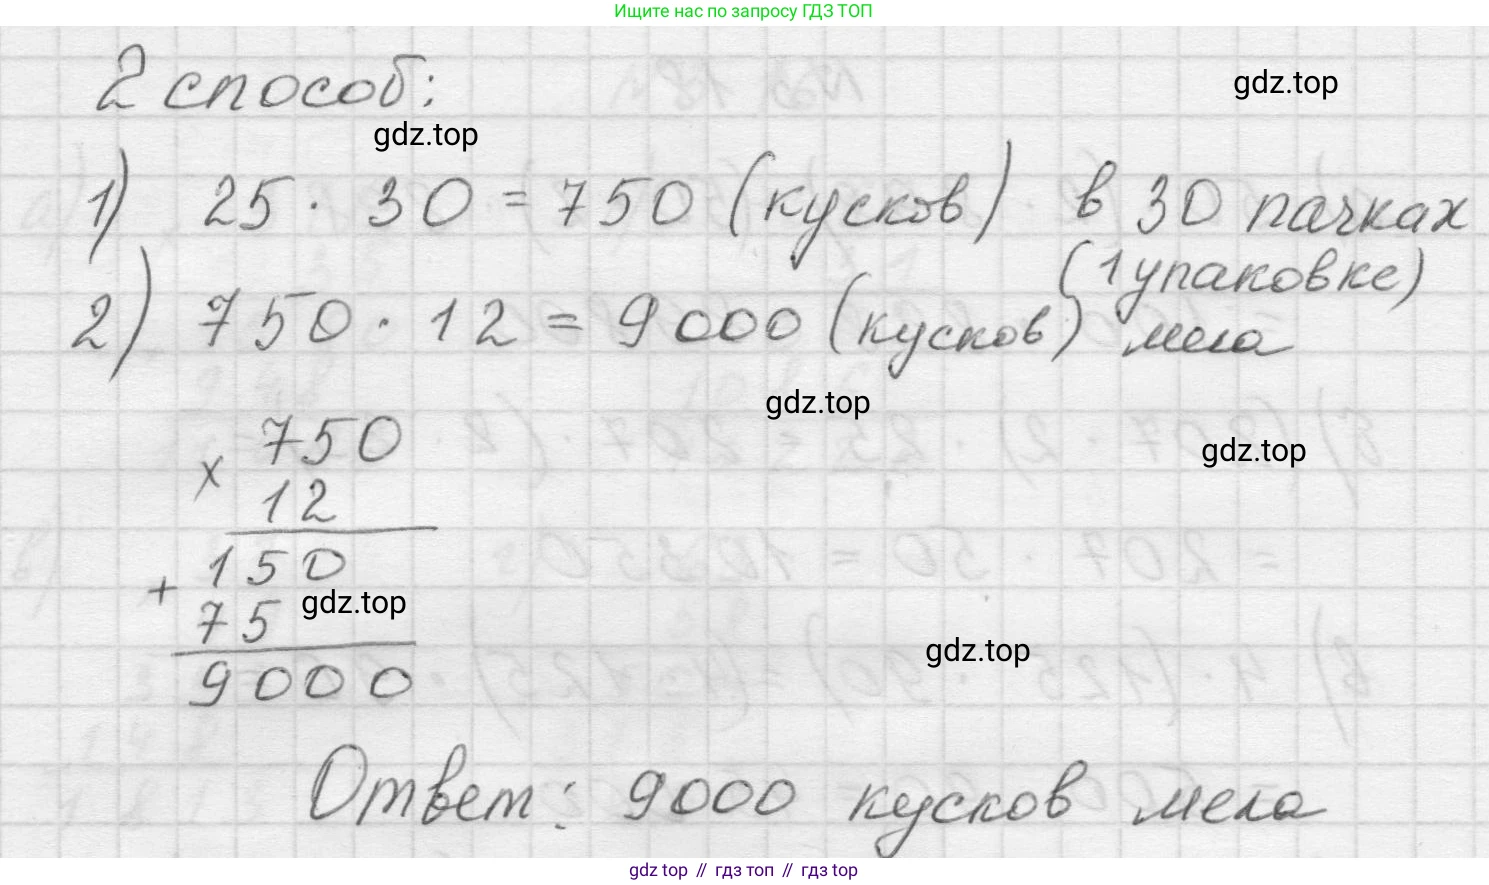 Ищите нас по запросу ГДЗ ТОП
2 способ:
gdz.top
gdz.top
1) 25 · 30 = 750 (кусков) в 30 пачках
(1 упаковке)
2) 750 · 12 = 9000 (кусков) мела
gdz.top
750
gdz.top
×
12
150
+
75
gdz.top
9000
gdz.top
Ответ: 9000 кусков мела
gdz top // гдз топ // гдз top